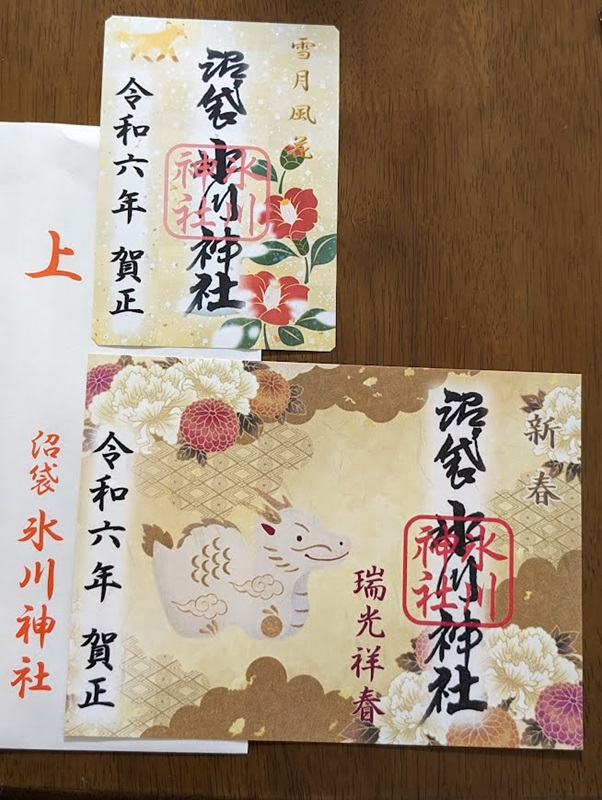 雪月風花
沼袋 氷川神社
氷川神社
令和六年 賀正
新春
沼袋 氷川神社
氷川神社
瑞光祥春
令和六年 賀正
上
沼袋 氷川神社